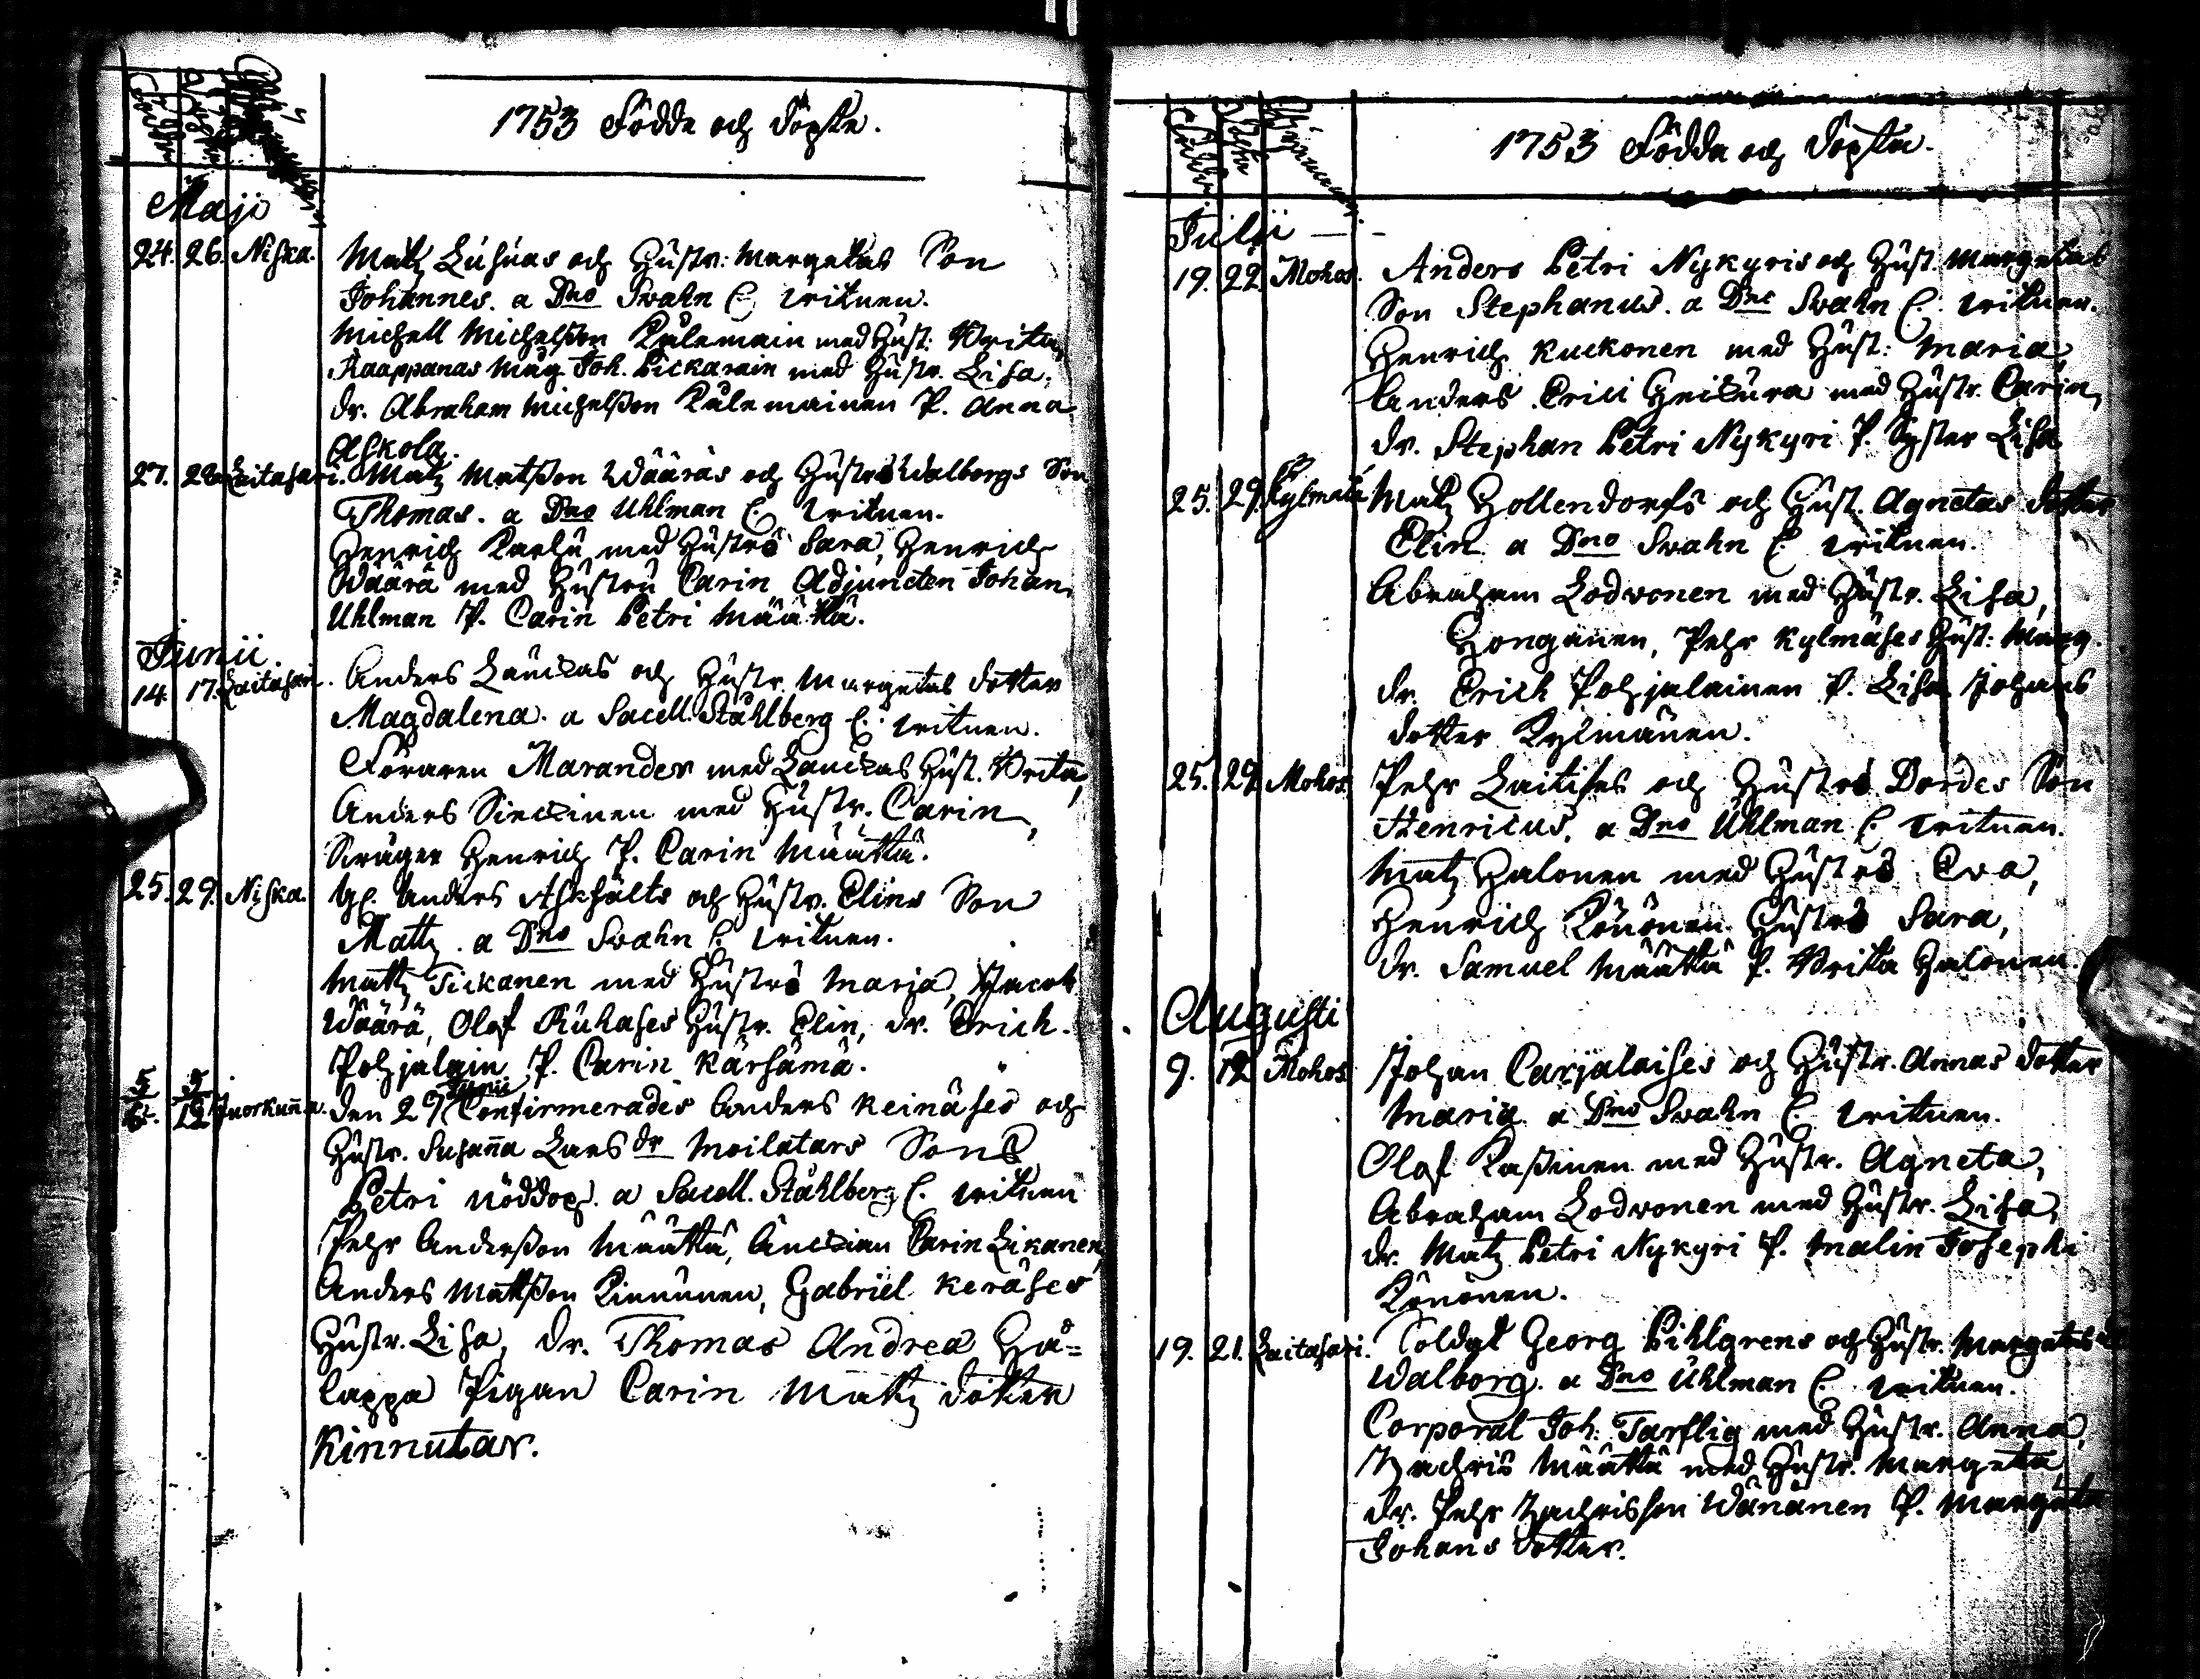 1753 Födde och döpte.
Maji
24. 26. Niska. Matz Lusuas och Hustr: Margetas Son
Johannes. a Dno Svahn C. vitnen.
Michell Michelsson Kulemain med Hust: Brita,
Raappanas Mag Joh. Pickarain med Hustr. Lisa,
dr. Abraham Michelsson Kulemainen P. Anna
Askola.
27. 28. Laitasari. Matz Matsson Wääräs och Hustrus Walborgs Son
Thomas. a Dno Uhlman C. vitnen.
Henrich Karhu med Hustru Sara, Henrich
Wäärä med Hustru Carin Adjuncten Johan
Uhlman P. Carin Petri Määttä.
Junii.
14. 17. Laitasari. Anders Lauckas och Hustr. Margetas dotter
Magdalena. a Sacell. Ståhlberg C. vitnen.
Föraren Marander med Lauckas Hust. Brita,
Anders Sieckinen med Hustr. Carin,
Kräger Henrich P. Carin Määttä.
25. 29. Niska. Anders Askhults och Hustr. Elins Son
Matz. a Dno Svahn C. vitnen.
Matz Tickanen med Hustru Maria, Jacob
Wäärä, Olof Ruhases Hustr. Elin, dr. Erich
Pohjalain P. Carin Kärsämä.
5 5
6. 12 Juorkuña. den 29 Junii Confirmerades Anders Keinäses och
Hustr. Susaña Lars dr Moilatars Son
Petri nöddöpt. a Sacell. Ståhlberg C. vitnen
Pehr Andersson Määttä, Änckian Carin Likanen,
Anders Mattsson Kinnunen, Gabriel Keräses
Hustr. Lisa, dr. Thomas Andrea Ha=
lappa Pigan Carin Matz dotter
Kinnutar.
1753 Födda och döpta.
Födde Döbte Byarne
Julii
19. 22 Mohos. Anders Petri Nykyris och Hust. Margetas
Son Stephanus. a Dno Svahn C. vitnen.
Henrich Kuckonen med Hust: Maria,
Anders Erici Heickura med Hustr. Carin,
dr. Stephan Petri Nykyri P. Syster Lisa
25. 29. Kylmälä Matz Hollendorfs och Hust. Agnetas dotter
Elin a Dno Svahn C. vitnen.
Abraham Lodvonen med Hustr. Lisa,
Honganen, Pehr Kylmäses Hust: Marg.
dr. Erich Pohjalainen P. Lisa Johans
dotter Kylmänen.
25. 29 Mohos Pehr Laitises och Hustrus Dordes Son
Henricus. a Dno Uhlman C. vitnen.
Matz Halonen med Hustru Eva,
Henrich Könönen Hustru Sara,
dr. Samuel Määttä P. Brita Halonen.
Augusti
9. 12 Mohos Johan Carjalaises och Hustr. Annas dotter
Maria a Dno Svahn C. vitnen.
Olof Kassinen med Hustr. Agneta,
Abraham Lodvonen med Hustr. Lisa,
dr. Matz Petri Nykyri P. Malin Josephi
Könönen.
19. 21. Laitasari. Soldat Georg Pihlgrens och Hustr. Margetas d
Walborg. a Dno Uhlman C. vitnen.
Corporal Joh. Tarflig med Hustr. Anna,
Zachris Määttä med Hustr. Margeta,
dr. Pehr Zachrisson Wänänen P. Margeta
Johans dotter.